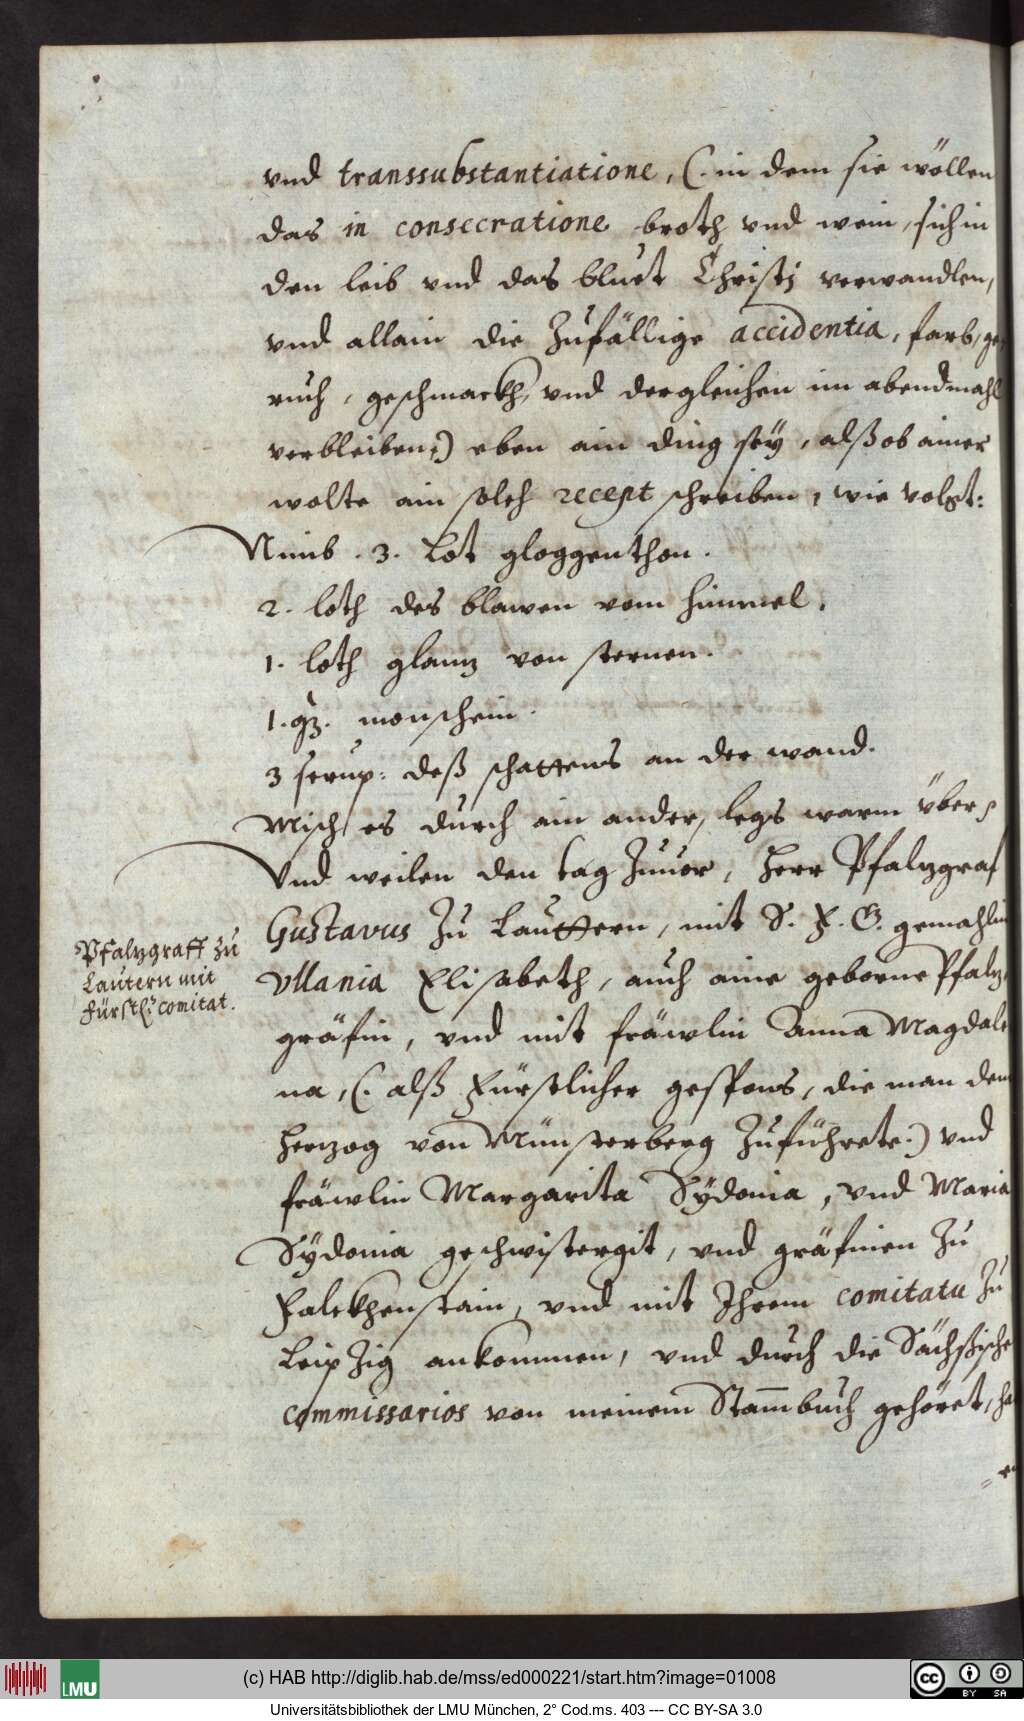 vnd transsubstantiatione, (. in dem sie wöllen
das in consecratione broth vnd wein, sich in
den leib vnd das bluet Christj verwandlen,
vnd allain die Zufällige accidentia, farb, ge
ruch, geschmackh, vnd dergleichen im abendmahl
verbleiben,) eben ain ding seÿ, alß ob ainer
wolte ain solch recept schreiben, wie volgt:
Nimb . 3. Lot gloggenthon.
2. loth des blawen vom himmel,
1. loth glantz von sternen.
1. q̃. monschein.
3 scrup: deß schattens an der wand.
Misch es durch ain ander, legs warm über,
Vnd weilen den tag Zuuor, Herr Pfaltzgraf
Pfaltzgraff Zu
Lautern mit
fürstl: comitat.
Gustavus Zu Lauttern, mit S. F. G. gemahlin
Vllania Elisabeth, auch aine geborne Pfaltz
gräfin, vnd mit fräwlin Anna Magdale
na, (. alß Fürstlicher gespons, die man dem
Hertzog von Münsterberg Zuführete.) vnd
fräwlin Margarita Sÿdonia, vnd Maria
Sÿdonia geschwistergit, vnd gräfinen Zu
Falckhenstain, vnd mit Ihrem comitatu Zu
Leipzig ankommen, vnd durch die Sächsische
commissarios von meinem Stam̅buch gehöret, ha
=en
(c) HAB http://diglib.hab.de/mss/ed000221/start.htm?image=01008
LMU
cc BY SA
Universitätsbibliothek der LMU München, 2° Cod.ms. 403 --- CC BY-SA 3.0